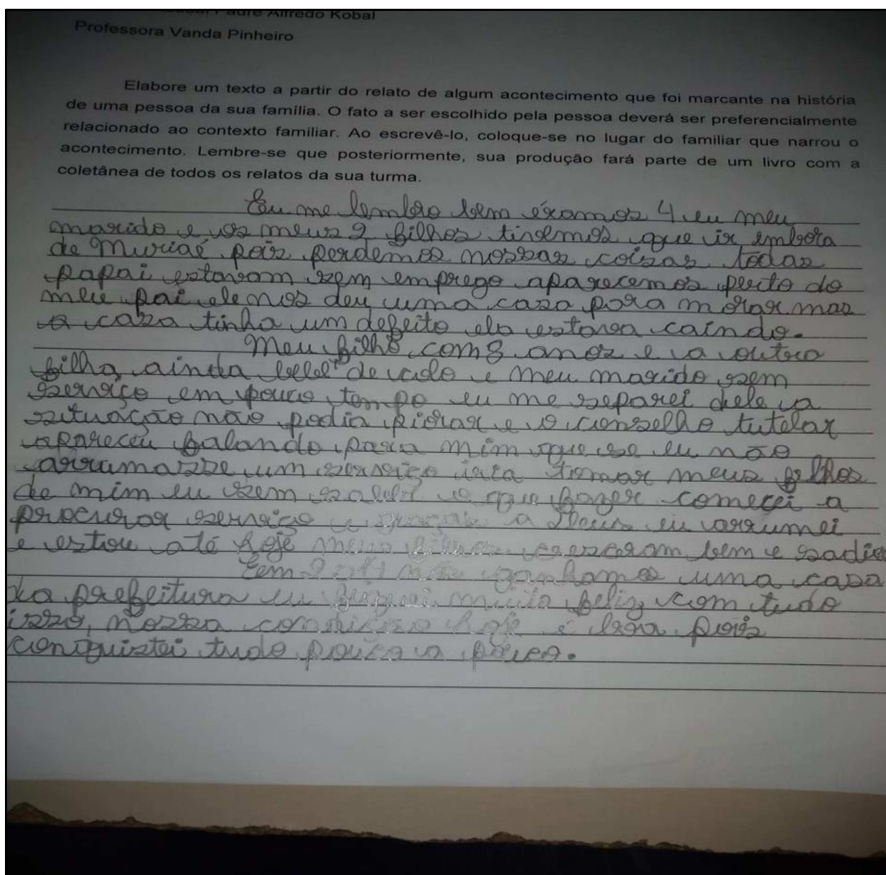 Padre Alfredo Kobal
Professora Vanda Pinheiro
Elabore um texto a partir do relato de algum acontecimento que foi marcante na história
de uma pessoa da sua família. O fato a ser escolhido pela pessoa deverá ser preferencialmente
relacionado ao contexto familiar. Ao escrevê-lo, coloque-se no lugar do familiar que narrou o
acontecimento. Lembre-se que posteriormente, sua produção fará parte de um livro com a
coletânea de todos os relatos da sua turma.
Eu me lembro bem éramos 4 eu meu
marido e os meus 2 filhos tivemos que ir embora
de Muriaé pois perdemos nossas coisas todas
papai estavam sem emprego aparecemos perto do
meu pai ele nos deu uma casa para morar mas
a casa tinha um defeito ela estava caindo.
Meu filho com 8 anos e a outra
filha ainda bebê de colo e meu marido sem
serviço em pouco tempo eu me separei dele a
situação não podia piorar e o conselho tutelar
apareceu falando para mim que se eu não
arrumasse um serviço iria tomar meus filhos
de mim eu sem saber o que fazer comecei a
procurar serviço e graças a Deus eu arrumei
e estou até hoje meus filhos cresceram bem e sadio
Em nós ganhamos uma casa
da prefeitura eu fiquei muito feliz com tudo
isso, nossa condição hoje é boa pois
conquistei tudo pouco a pouco.